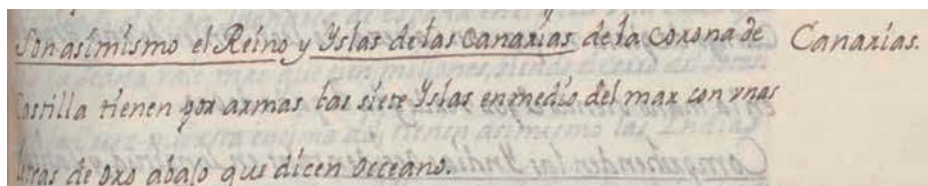 Son asimismo el Reino y Yslas de las Canarias de la corona de Canarias.
Castilla tienen por armas las siete Yslas en medio del mar con vnas
letras de oro abajo que dicen occeano.